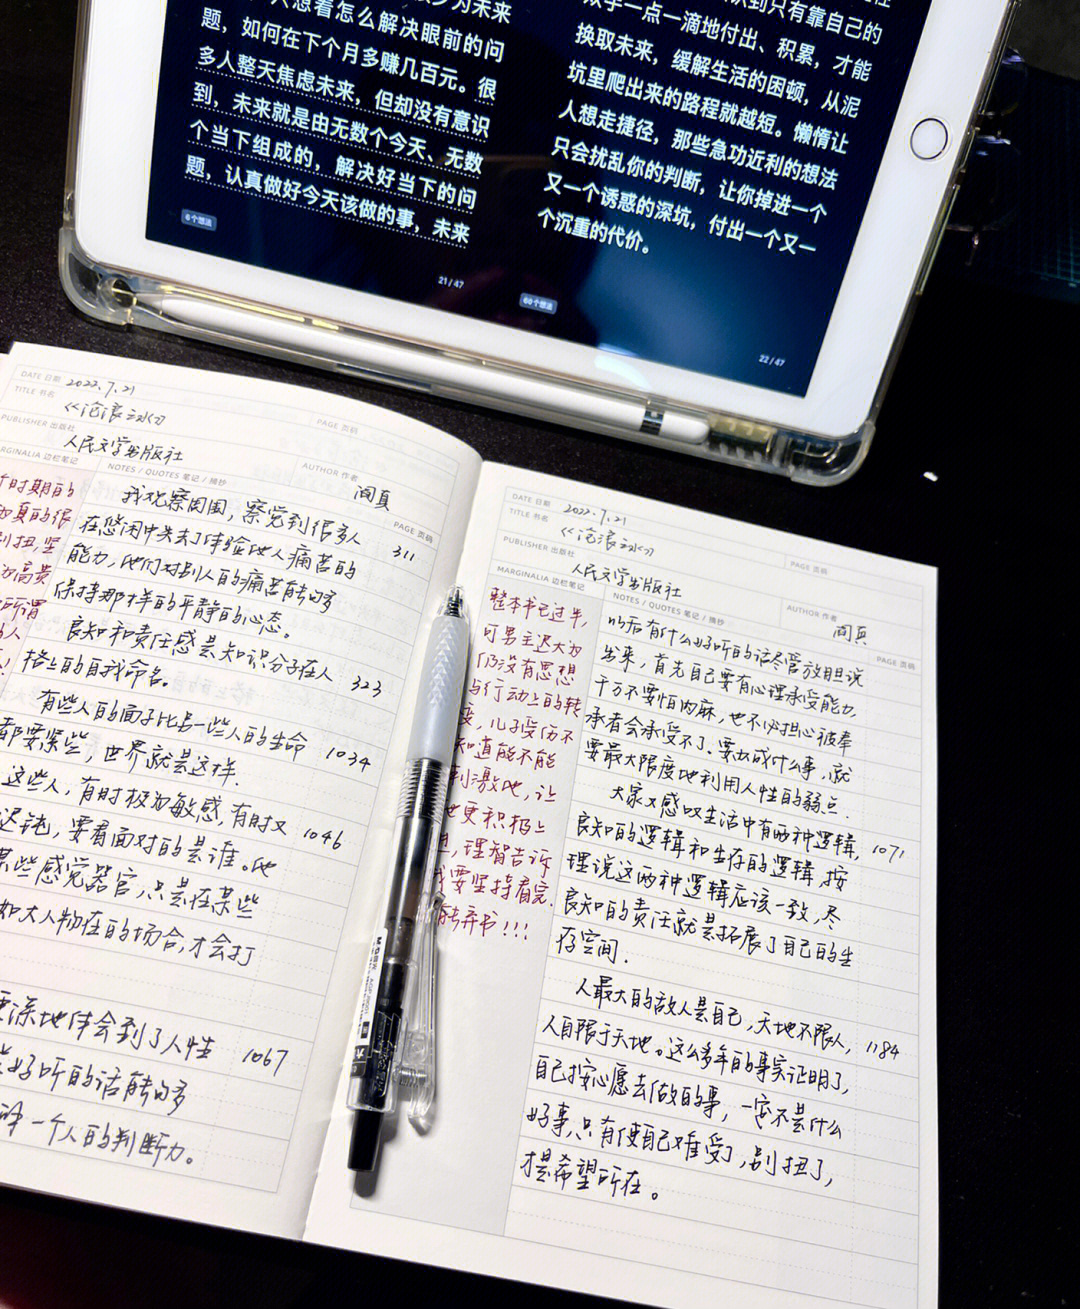 想看怎么解决眼前的问
题，如何在下个月多赚几百元。很
多人整天焦虑未来，但却没有意识
到，未来就是由无数个今天、无数
个当下组成的，解决好当下的问
题，认真做好今天该做的事，未来
6个想法
21 / 47
到只有靠自己的
双手一点一滴地付出、积累，才能
换取未来，缓解生活的困顿，从泥
坑里爬出来的路程就越短。懒惰让
人想走捷径，那些急功近利的想法
只会扰乱你的判断，让你掉进一个
又一个诱惑的深坑，付出一个又一
个沉重的代价。
60个想法
22 / 47
DATE 日期 2022.7.21
TITLE 书名 《沧浪之水》
PAGE 页码
PUBLISHER 出版社 人民文学出版社
AUTHOR 作者 阎真
MARGINALIA 边栏笔记
NOTES / QUOTES 笔记 / 摘抄
PAGE 页码
时期的
真的很
别扭,坚
高贵
所谓
人
我观察周围，察觉到很多人
在悠闲中失去了体验他人痛苦的 311
能力,他们对别人的痛苦能够
保持那样的平静的心态。
良知和责任感是知识分子在人
格上的自我命名。 323
有些人的面子比另一些人的生命
都要紧些，世界就是这样. 1034
这些人，有时极为敏感,有时又
迟钝，要看面对的是谁。他 1046
某些感觉器官,只是在某些
如大人物在的场合,才会打
深地体会到了人性 1067
好听的话能够
一个人的判断力。
DATE 日期 2022.7.21
TITLE 书名 《沧浪之水》
PAGE 页码
PUBLISHER 出版社 人民文学出版社
AUTHOR 作者 阎真
MARGINALIA 边栏笔记
NOTES / QUOTES 笔记 / 摘抄
PAGE 页码
整本书已过半,
可男主迟大为
仍没有思想
与行动上的转
变,儿子受伤不
知道能不能
刺激他,让
他更积极上
,理智告诉
我要坚持看完.
能弃书!!!
以后有什么好听的话尽管放胆说
出来，首先自己要有心理承受能力,
千万不要怕肉麻,也不必担心被奉
承者会承受不了.要办成什么事,就
要最大限度地利用人性的弱点.
大家又感叹生活中有两种逻辑,
良知的逻辑和生存的逻辑,按 1071
理说这两种逻辑应该一致,尽
良知的责任就是拓展了自己的生
存空间.
人最大的敌人是自己,天地不限人,
人自限于天地。这么多年的事实证明了, 1184
自己按心愿去做的事，一定不是什么
好事,只有使自己难受了,别扭了,
才是希望所在。